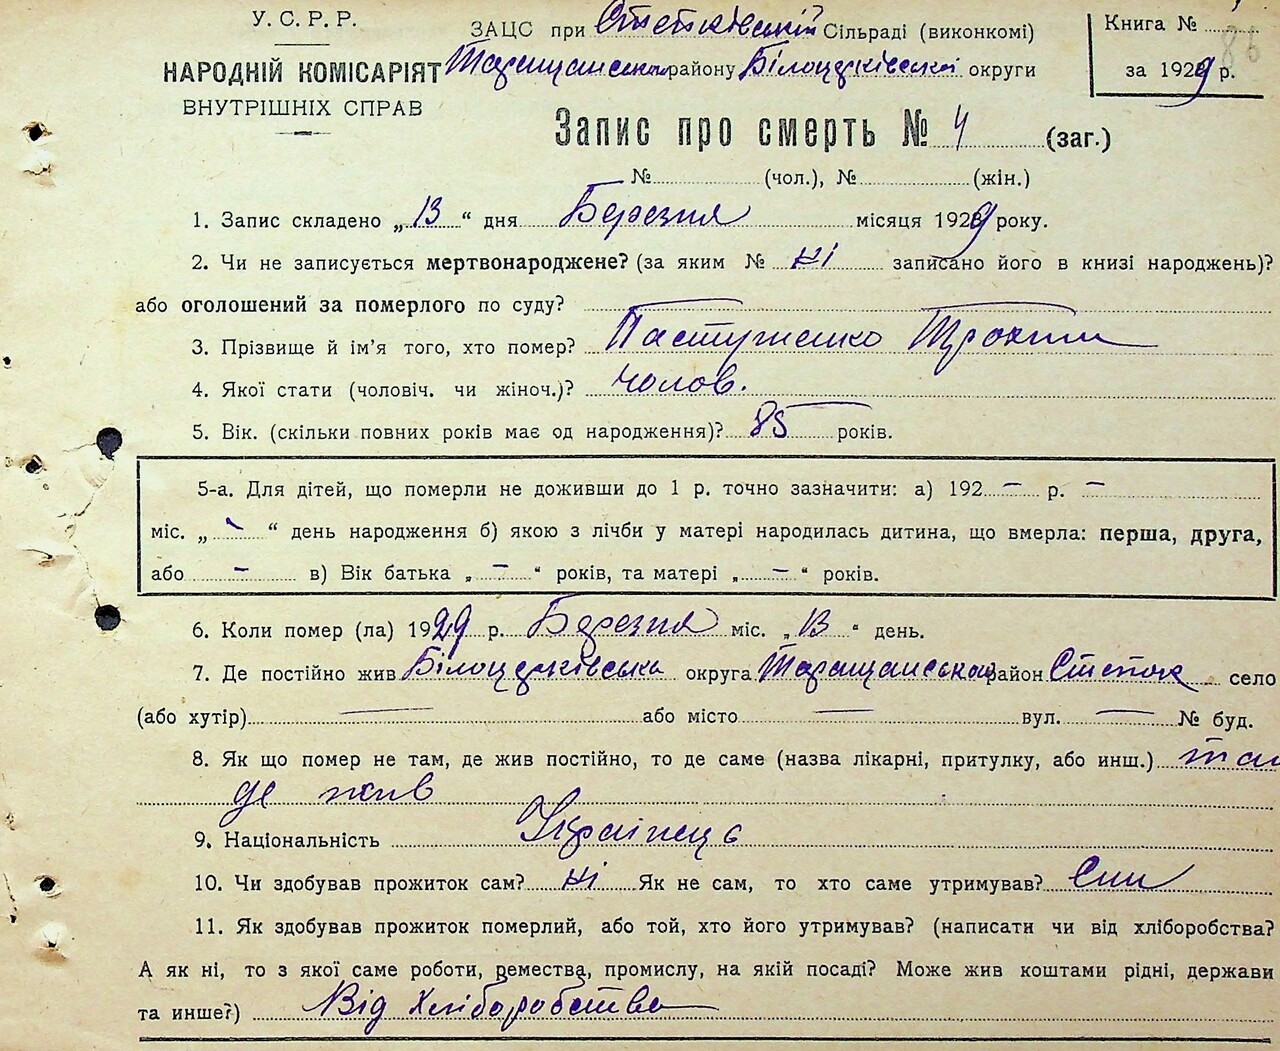 У. С. Р. Р.
НАРОДНІЙ КОМІСАРІЯТ
ВНУТРІШНІХ СПРАВ
ЗАЦС при Степківській Сільраді (виконкомі)
Таращанського району Білоцерківської округи
Книга №
86
за 1929 р.
Запис про смерть № 4 (заг.)
№ (чол.), № (жін.)
1. Запис складено „ 13 “ дня Березня місяця 1929 року.
2. Чи не записується мертвонароджене? (за яким № ні записано його в книзі народжень)?
або оголошений за померлого по суду?
3. Прізвище й ім'я того, хто помер? Пастушенко Трохим
4. Якої стати (чоловіч. чи жіноч.)? чолов.
5. Вік. (скільки повних років має од народження)? 85 років.
5-а. Для дітей, що померли не доживши до 1 р. точно зазначити: а) 192 – р. –
міс. „ - “ день народження б) якою з лічби у матері народилась дитина, що вмерла: перша, друга,
або – в) Вік батька „ – “ років, та матері „ – “ років.
6. Коли помер (ла) 1929 р. Березня міс. „ 13 “ день.
7. Де постійно жив Білоцерківська округа Таращанськой район Степок село
(або хутір) — або місто — вул. — № буд.
8. Як що помер не там, де жив постійно, то де саме (назва лікарні, притулку, або инш.) там
де жив
9. Національність Українець
10. Чи здобував прожиток сам? ні Як не сам, то хто саме утримував? Син
11. Як здобував прожиток померлий, або той, хто його утримував? (написати чи від хліборобства?
А як ні, то з якої саме роботи, ремества, промислу, на якій посаді? Може жив коштами рідні, держави
та инше?) Від Хліборобства